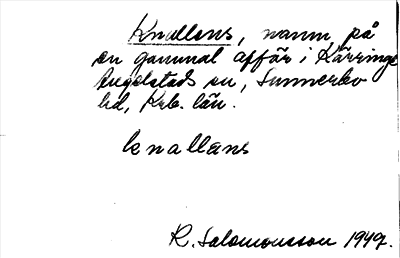 Knallens, namn på
en gammal affär i Kärringe
Angelstads sn, Sunnerbo
hd, Krb. län.
knallens
R. Salomonsson 1949.